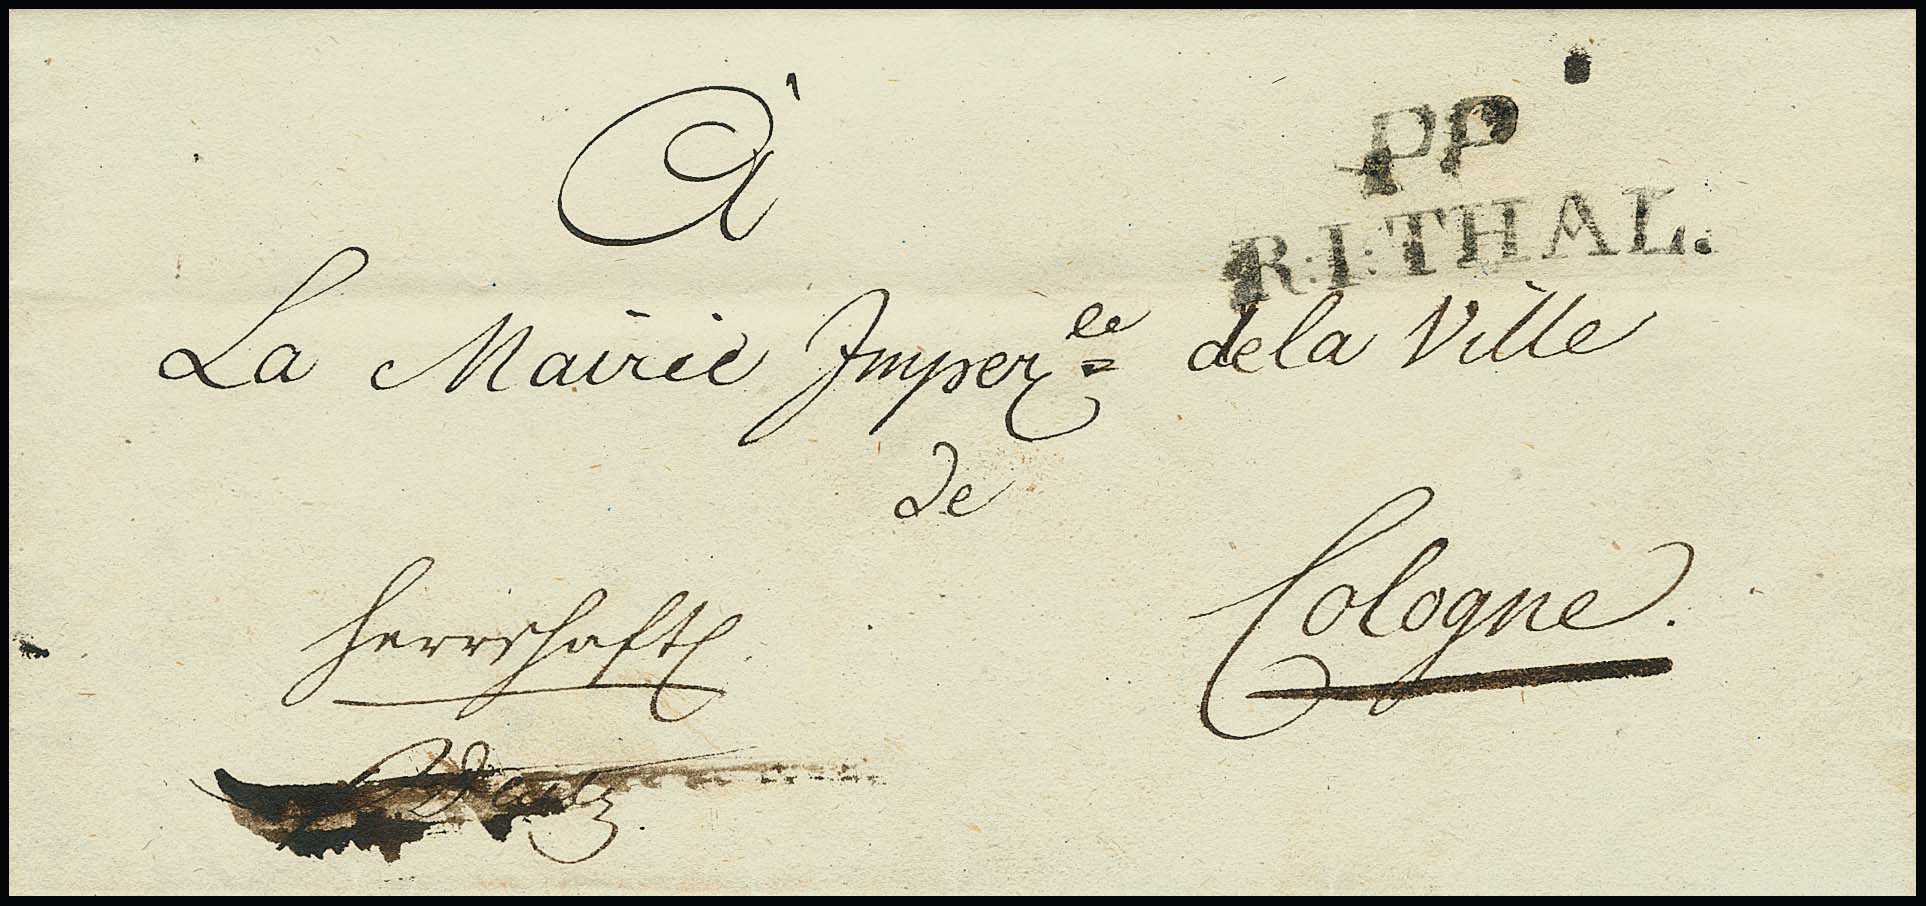 PP
R:I:THAL.
À
La Mairie Imper.le de la Ville
de
Cologne.
Herrschaftl.